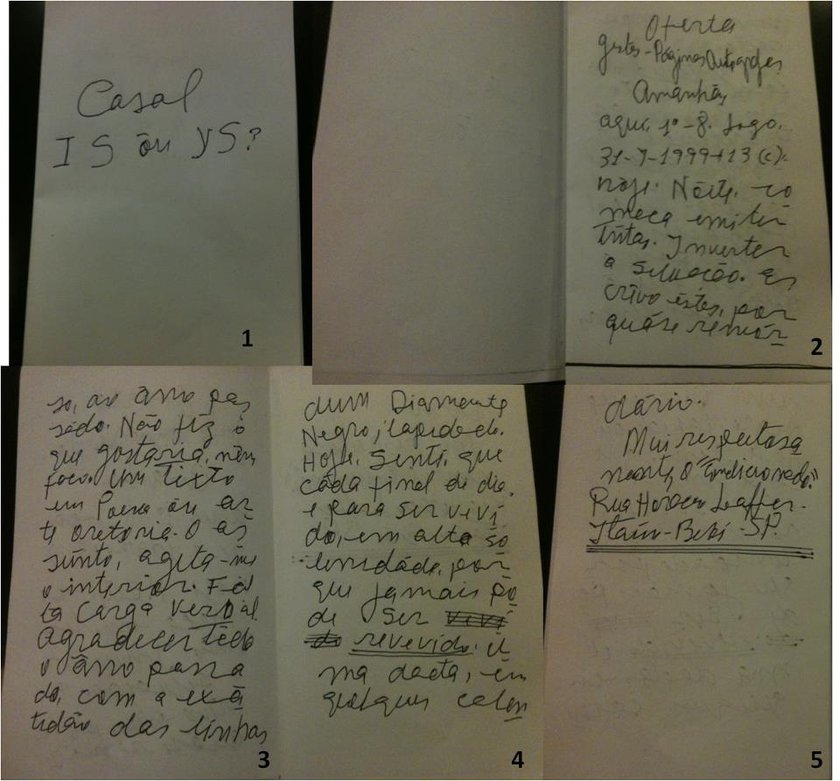 Casal
IS ou YS?
1
Oferta
gestos - Páginas Autógrafas
Amanhã,
aqui, 1º-8. Logo,
31-7-1999+13 (c).
hoje. Nôite, co
meca emitir
tritas. Inverter
a situação. Es
crivo êstes, por
quáse remór
2
so, ao âno pas
sado. Não fiz o
que gostaria, nem
faço. Um texto
em Poesia ou ar
te oretoria. O as
sunto, agita-me
o interior. Fal
ta carga verbal.
Agradecer tôdo
o âno passa
do, com a exá
tidão das linhas
3
dum Diamante
Negro, lapidado.
Hoje. Senti, que
cada final de dia,
e para ser vivi
do, em alta so
lenidade, por
que jamais po
de ser vivi
do revevido. U
ma data, em
qualquer calen
4
dário.
Mui respeitosa
mente, O "Condicionado".
Rua Horacio Laffer-
Itaim-Bibi-SP.
5